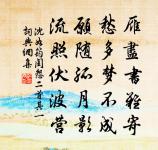 雁盡書難寄
愁多夢不成
願隨孤月影
流照伏波營
沈如筠閨怨二首其一
詞典網集